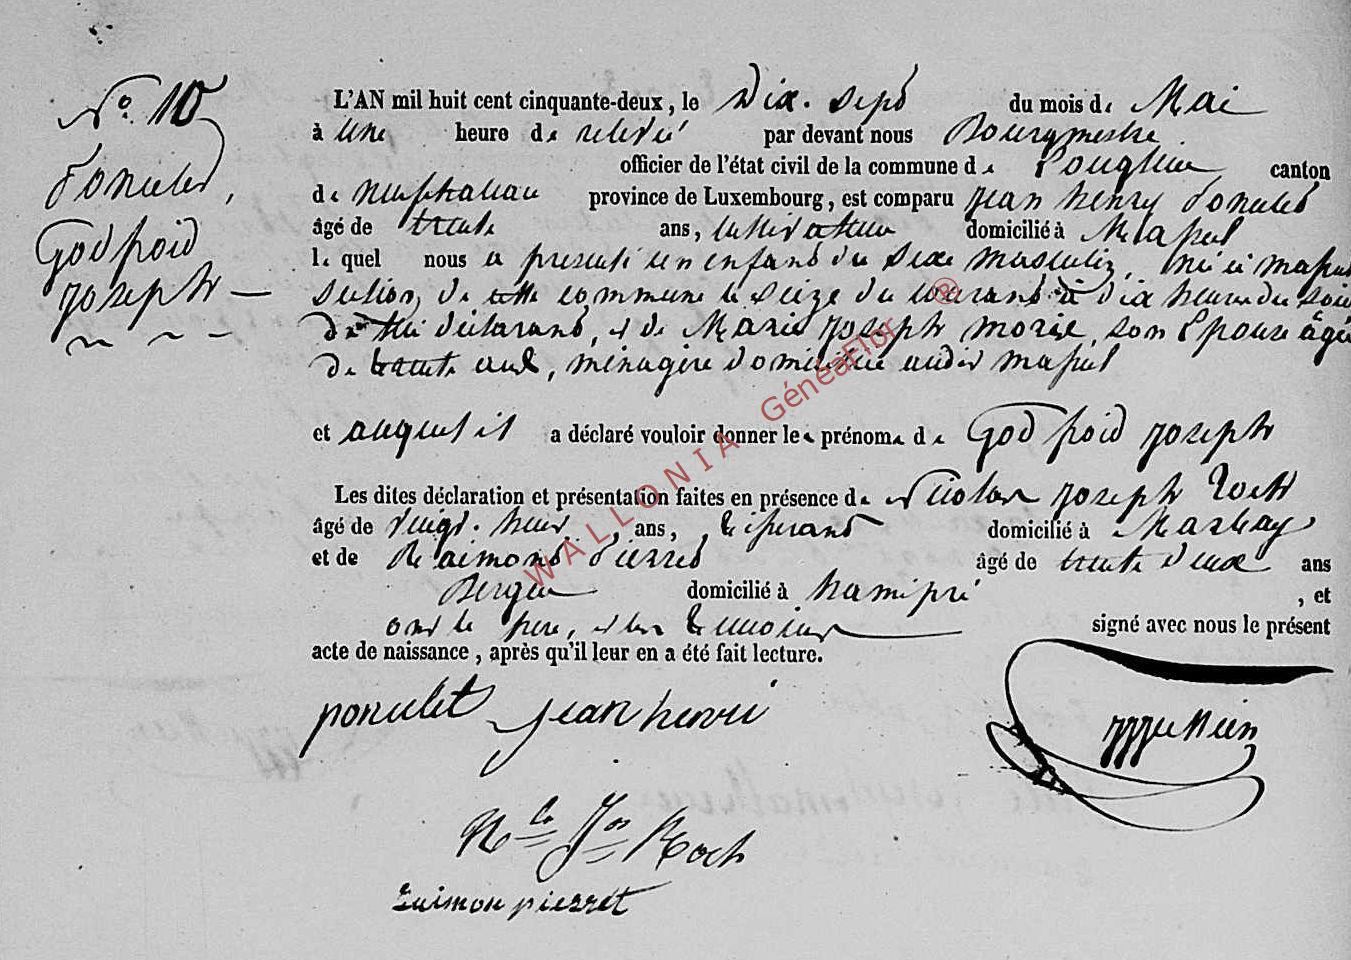 N° 10
Ponulet,
Godfroid
Joseph —
L'AN mil huit cent cinquante-deux, le Dix-sept du mois de Mai
à une heure de relevée par devant nous Bourgmestre
officier de l'état civil de la commune de Longlier canton
de neufchateau province de Luxembourg, est comparu Jean henry Ponulet
âgé de trente ans, cultivateur domicilié à Massul
lequel nous a presenté un enfant du sexe masculin, né à massul
section de cette commune le seize du courant à dix heures du soir
de lui déclarant, et de Marie Joseph son Epouse âgée
de trente ans, ménagère domiciliée audit massul
et auquel il a déclaré vouloir donner les prénoms de Godfroid Joseph
Les dites déclaration et présentation faites en présence de Nicolas Joseph Roch
âgé de vingt-neuf ans, domicilié à Marbay
et de Raimond Pierret âgé de trente deux ans
Berger domicilié à hamipré, et
ont le père, et les témoins signé avec nous le présent
acte de naissance, après qu'il leur en a été fait lecture.
ponulet jean henri
Nlas Jos Roch
raimon pierret
WALLONIA GénéaFlor ®